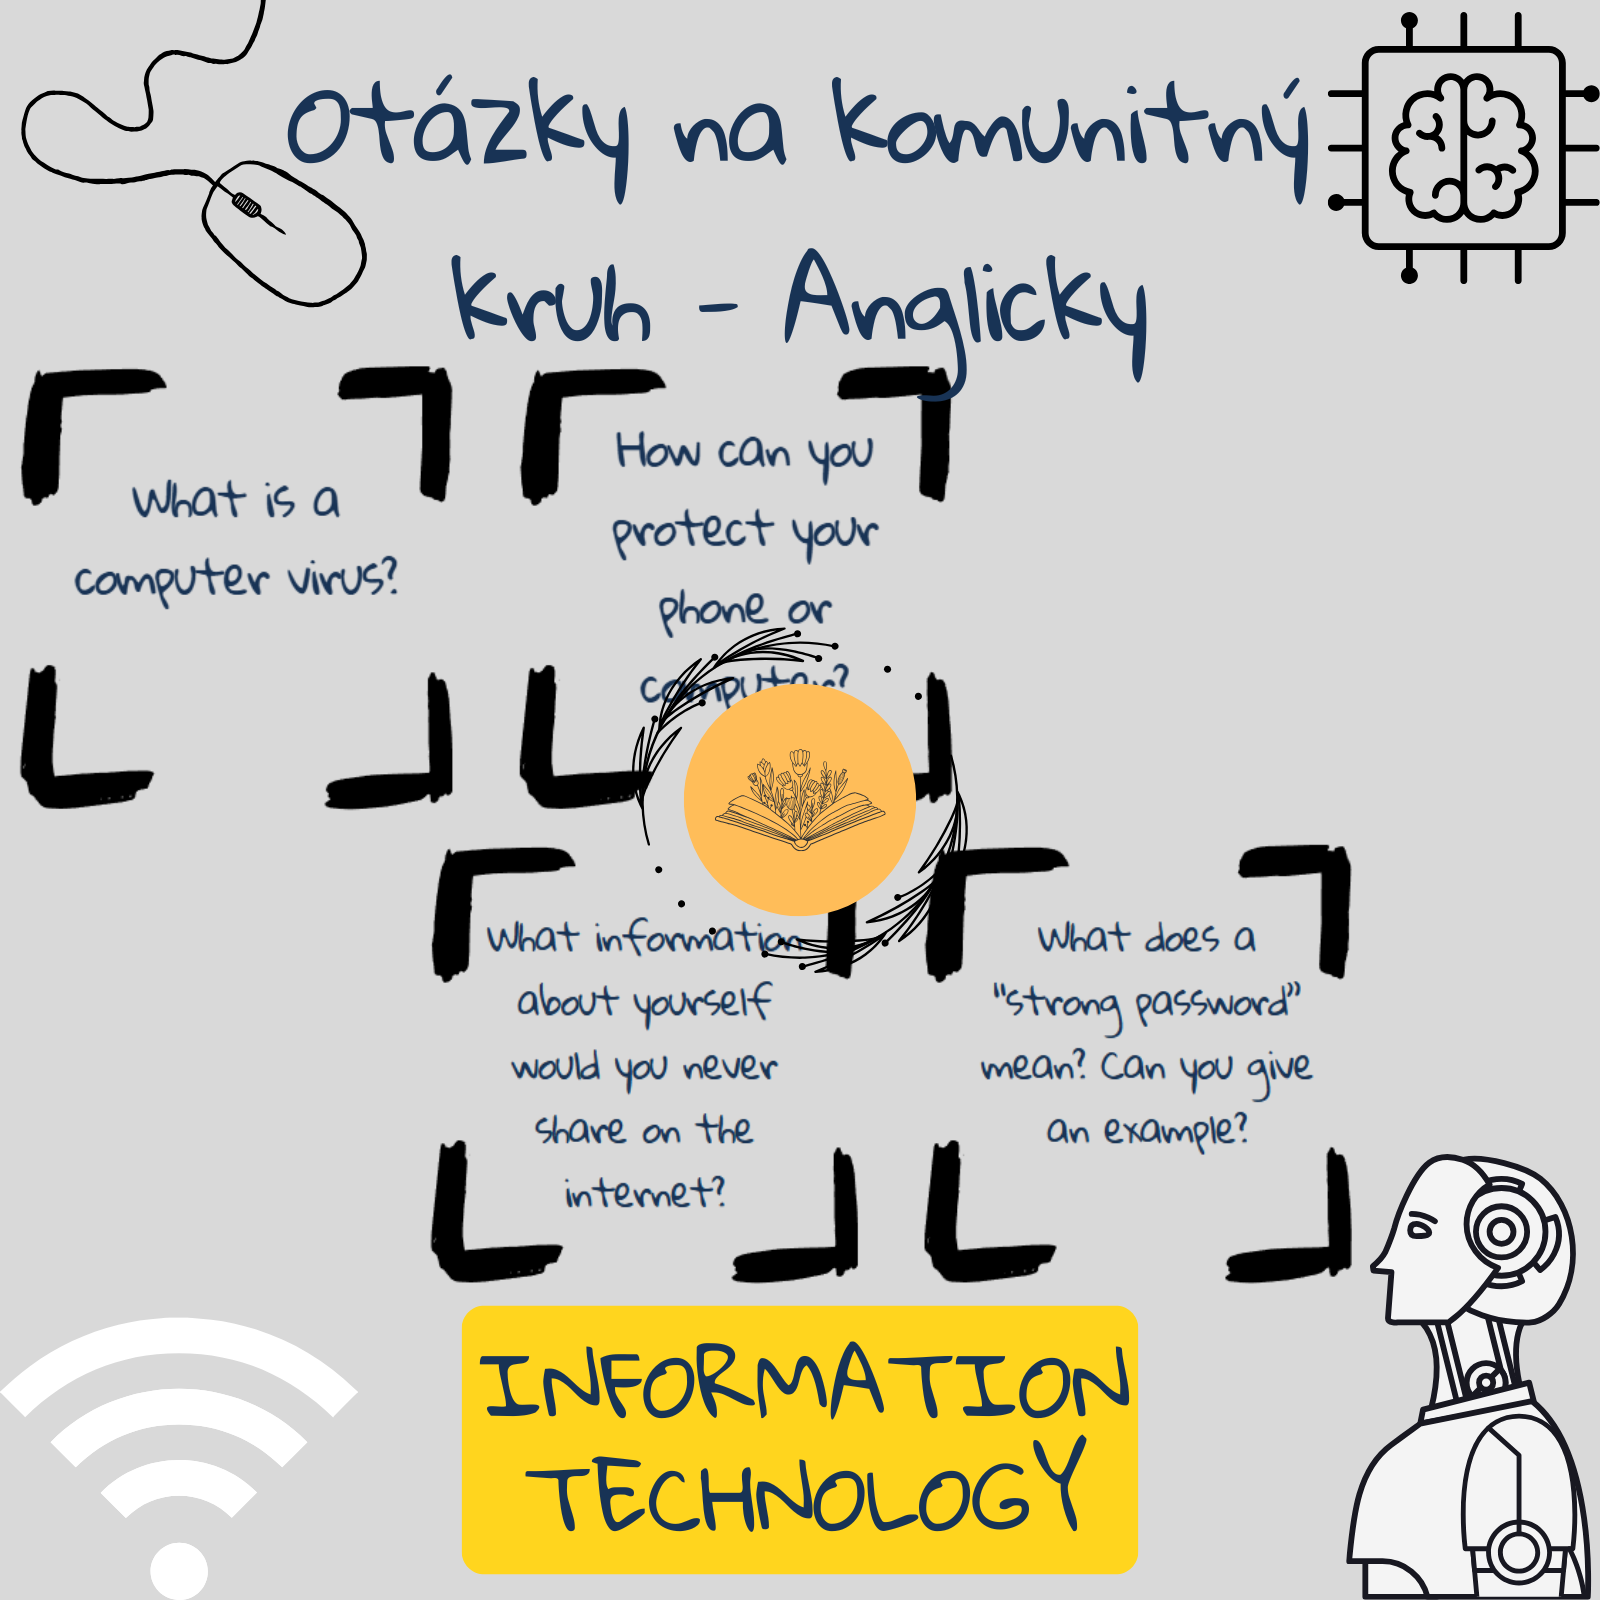 Otázky na komunitný
kruh - Anglicky
What is a
computer virus?
How can you
protect your
phone or
computer?
What information
about yourself
would you never
share on the
internet?
What does a
"strong password"
mean? Can you give
an example?
INFORMATION
TECHNOLOGY